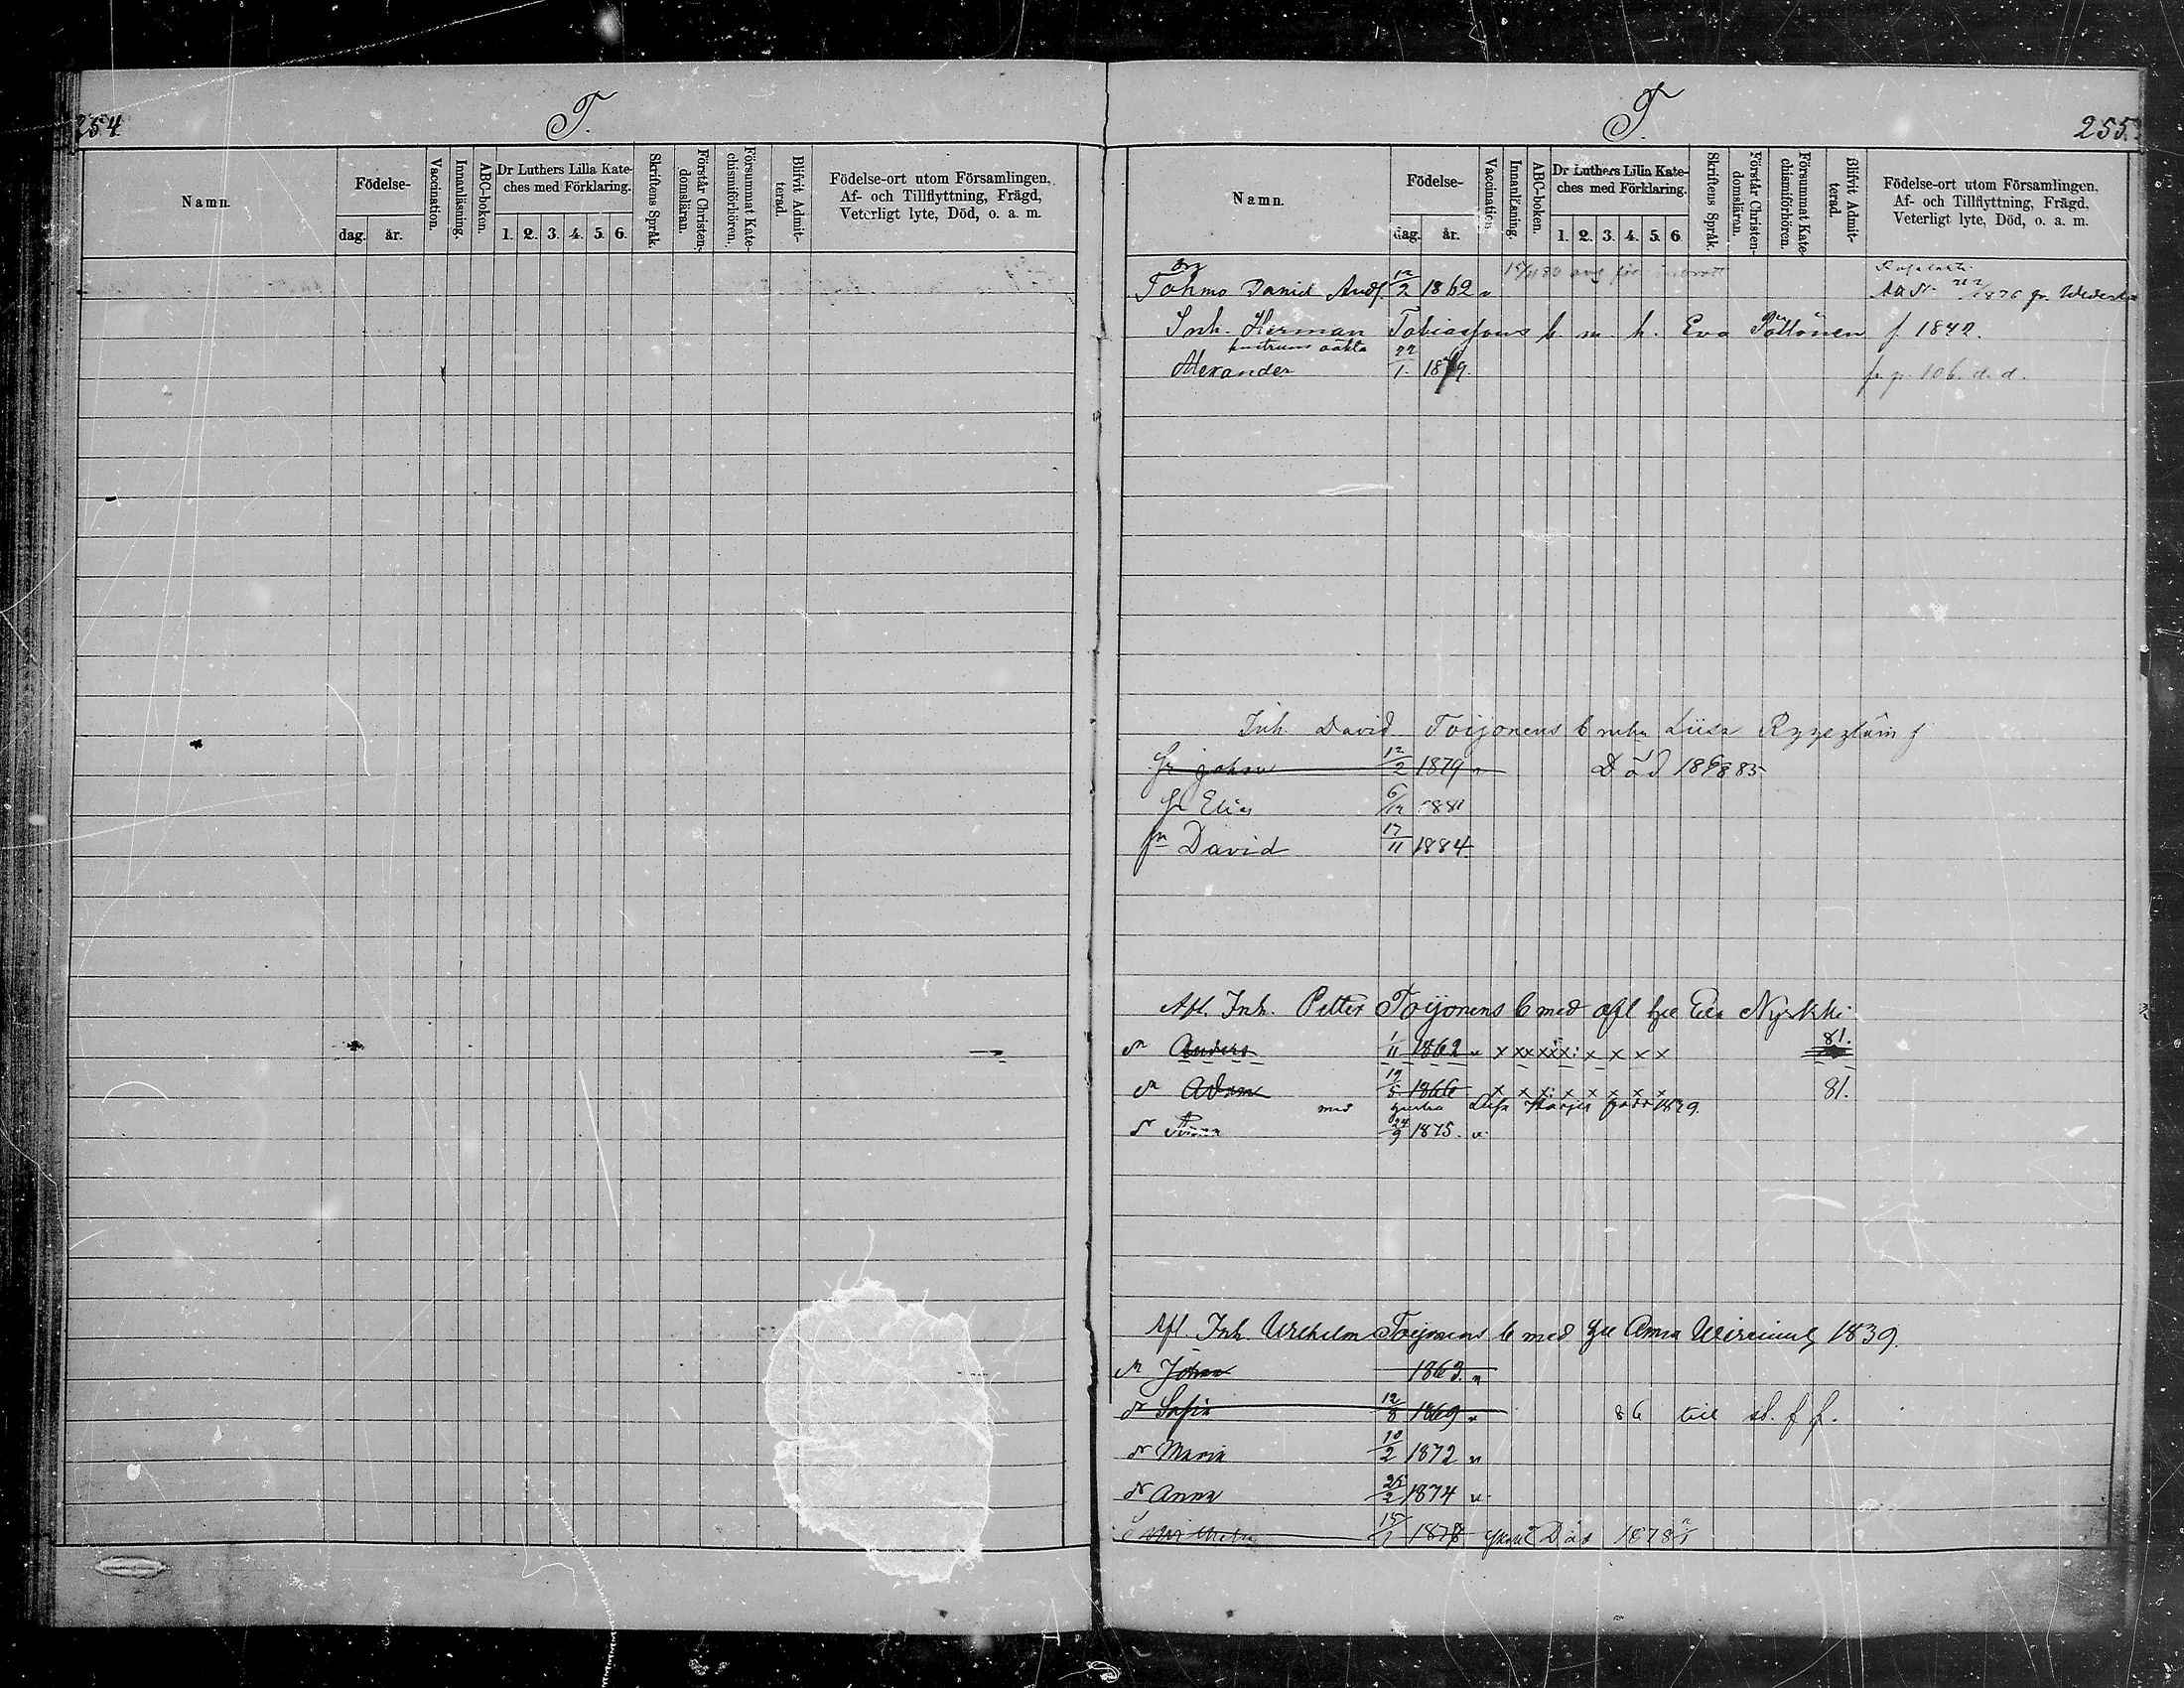 254.
T.
Namn.
Födelse-
dag.
år.
Vaccination.
Innanläsning.
ABC-boken.
Dr Luthers Lilla Kate-
ches med Förklaring.
1. 2. 3. 4. 5. 6.
Skriftens Språk.
Förstår Christen-
domsläran.
Försummat Kate-
chismiförhören.
Blifvit Admit-
terad.
Födelse-ort utom Församlingen,
Af- och Tillflyttning, Frägd,
Veterligt lyte, Död, o. a. m.
T.
255.
Namn.
Födelse-
dag.
år.
Vaccination.
Innanläsning.
ABC-boken.
Dr Luthers Lilla Kate-
ches med Förklaring.
1. 2. 3. 4. 5. 6.
Skriftens Språk.
Förstår Christen-
domsläran.
Försummat Kate-
chismiförhören.
Blifvit Admit-
terad.
Födelse-ort utom Församlingen,
Af- och Tillflyttning, Frägd,
Veterligt lyte, Död, o. a. m.
Tahmo David 12/2 1862 v
1876
Inh. Herman Tobiassons b. m. h. Eva Pöllönen f. 1842.
hustruns oäkta
Alexander 22/1. 1879. fr. p. 106. d. d.
Inh. David Toijonens b m hu Liisa
Johan 12/2 1879 v Död 85
Elias 6/12 1881
sn David 17/11 1884
Afl. Inh. Petter Toijonens b med afl hu Eva Nyrkki
sn Anders 1/11 1862 v x x x x x x x x x x 81.
sn Adam 19/5 1866 x x x x x x x x 81.
med hustra 1839.
d Anna 24/9 1875. v.
Afl. Inh. Wilhelm Toijonens b med hu Anna 1839.
sn Johan 1863. v
dr Sofia 12/8 1869 v 86 till sl. f f.
dr Maria 10/2 1872 v
dr Anna 25/2 1874 v.
S Wilhelm 15/1 1878 Död 1878